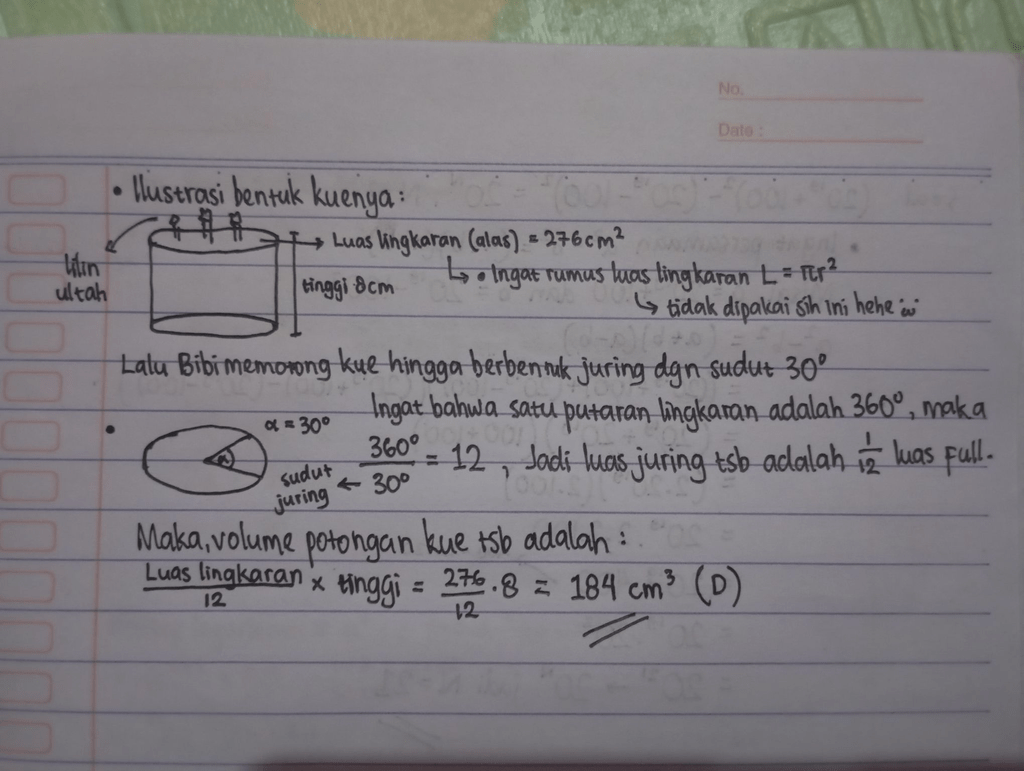 No.
Date :
• Ilustrasi bentuk kuenya :
lilin ultah
→ Luas lingkaran (alas) = 276 cm²
tinggi 8 cm
↳ • Ingat rumus luas lingkaran L = πr²
↳ tidak dipakai sih ini hehe
Lalu Bibi memotong kue hingga berbentuk juring dgn sudut 30°
Ingat bahwa satu putaran lingkaran adalah 360°, maka
• α = 30°
sudut juring ← 360°/30° = 12 , Jadi luas juring tsb adalah 1/12 luas full.
Maka, volume potongan kue tsb adalah :
Luas lingkaran/12 × tinggi = 276/12 . 8 = 184 cm³ (D)